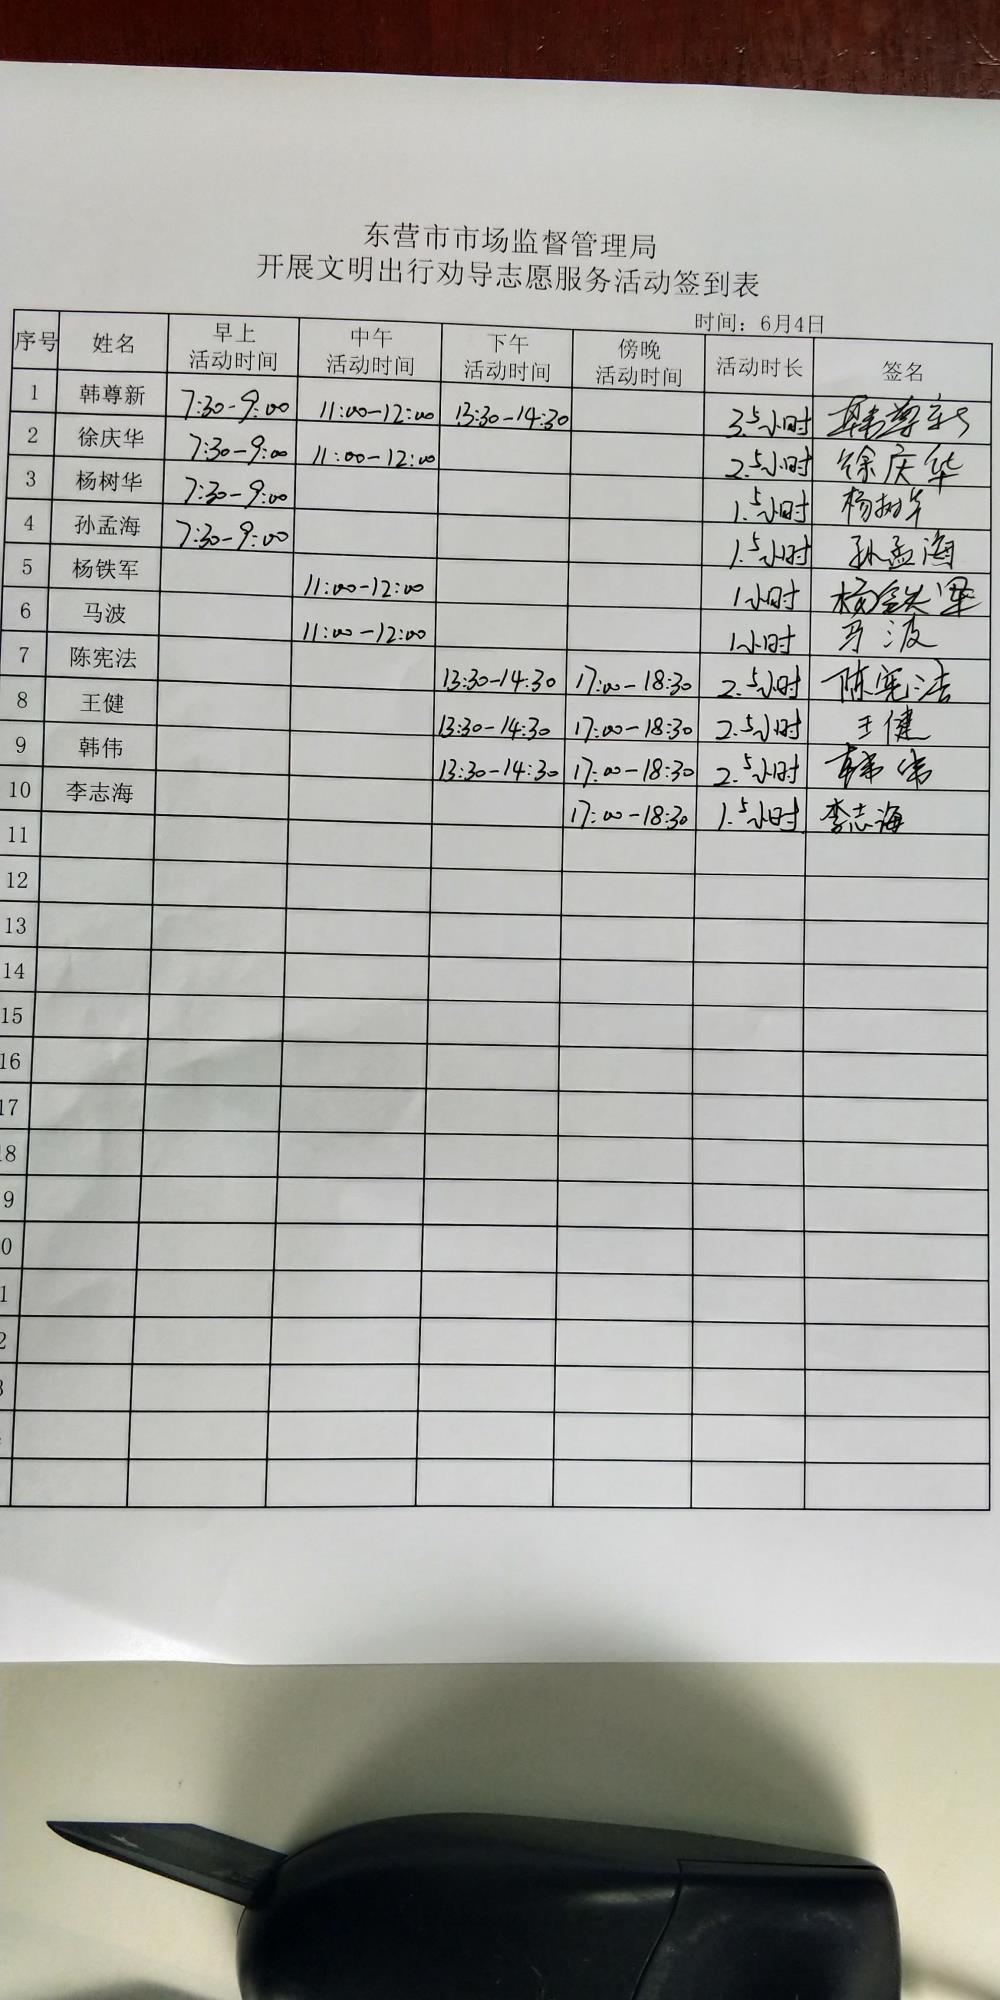 东营市市场监督管理局
开展文明出行劝导志愿服务活动签到表
时间：6月4日
序号 姓名 早上活动时间 中午活动时间 下午活动时间 傍晚活动时间 活动时长 签名
1 韩尊新 7:30-9:00 11:00-12:00 13:30-14:30 3.5小时 韩尊新
2 徐庆华 7:30-9:00 11:00-12:00 2.5小时 徐庆华
3 杨树华 7:30-9:00 1.5小时 杨树华
4 孙孟海 7:30-9:00 1.5小时 孙孟海
5 杨铁军 11:00-12:00 1小时 杨铁军
6 马波 11:00-12:00 1小时 马波
7 陈宪法 13:30-14:30 17:00-18:30 2.5小时 陈宪法
8 王健 13:30-14:30 17:00-18:30 2.5小时 王健
9 韩伟 13:30-14:30 17:00-18:30 2.5小时 韩伟
10 李志海 17:00-18:30 1.5小时 李志海
11
12
13
14
15
16
17
18
9
0
1
2
3